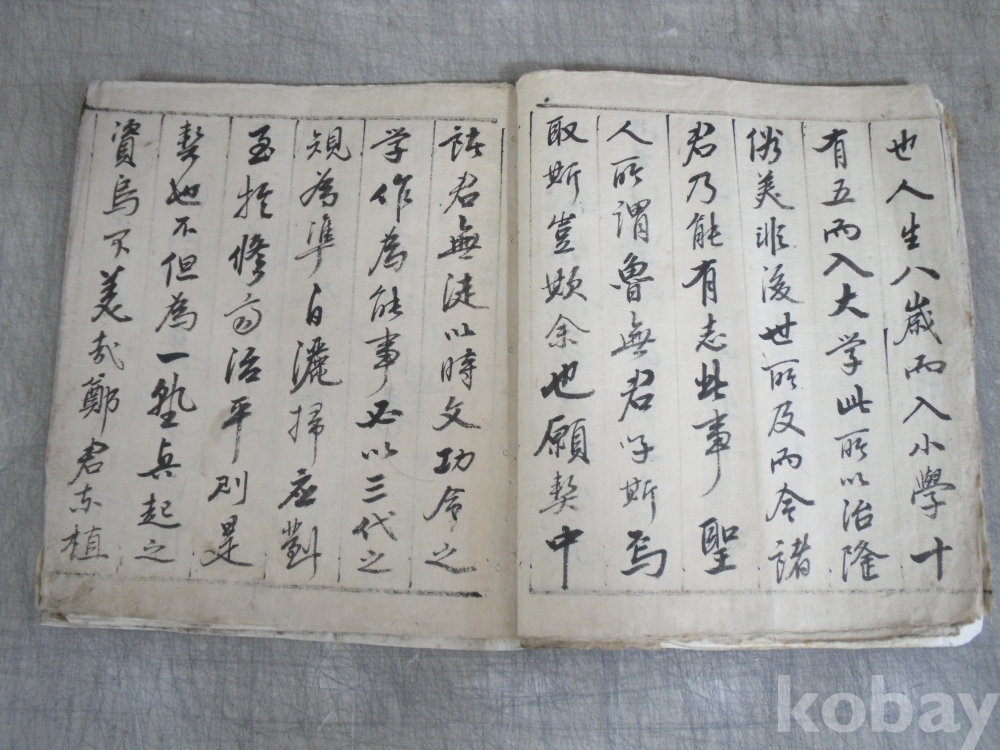 也人生八歲而入小學十
有五而入大学此所以治隆
俗美非後世所及而今諸
君乃能有志此事聖
人所謂魯無君子斯焉
取斯豈欺余也願契中
諸君無徒以時文功令之
学作為能事必以三代之
規為準自灑掃應對
至於修齊治平則是
契也不但為一塾興起之
資烏可美哉鄭君東植
kobay